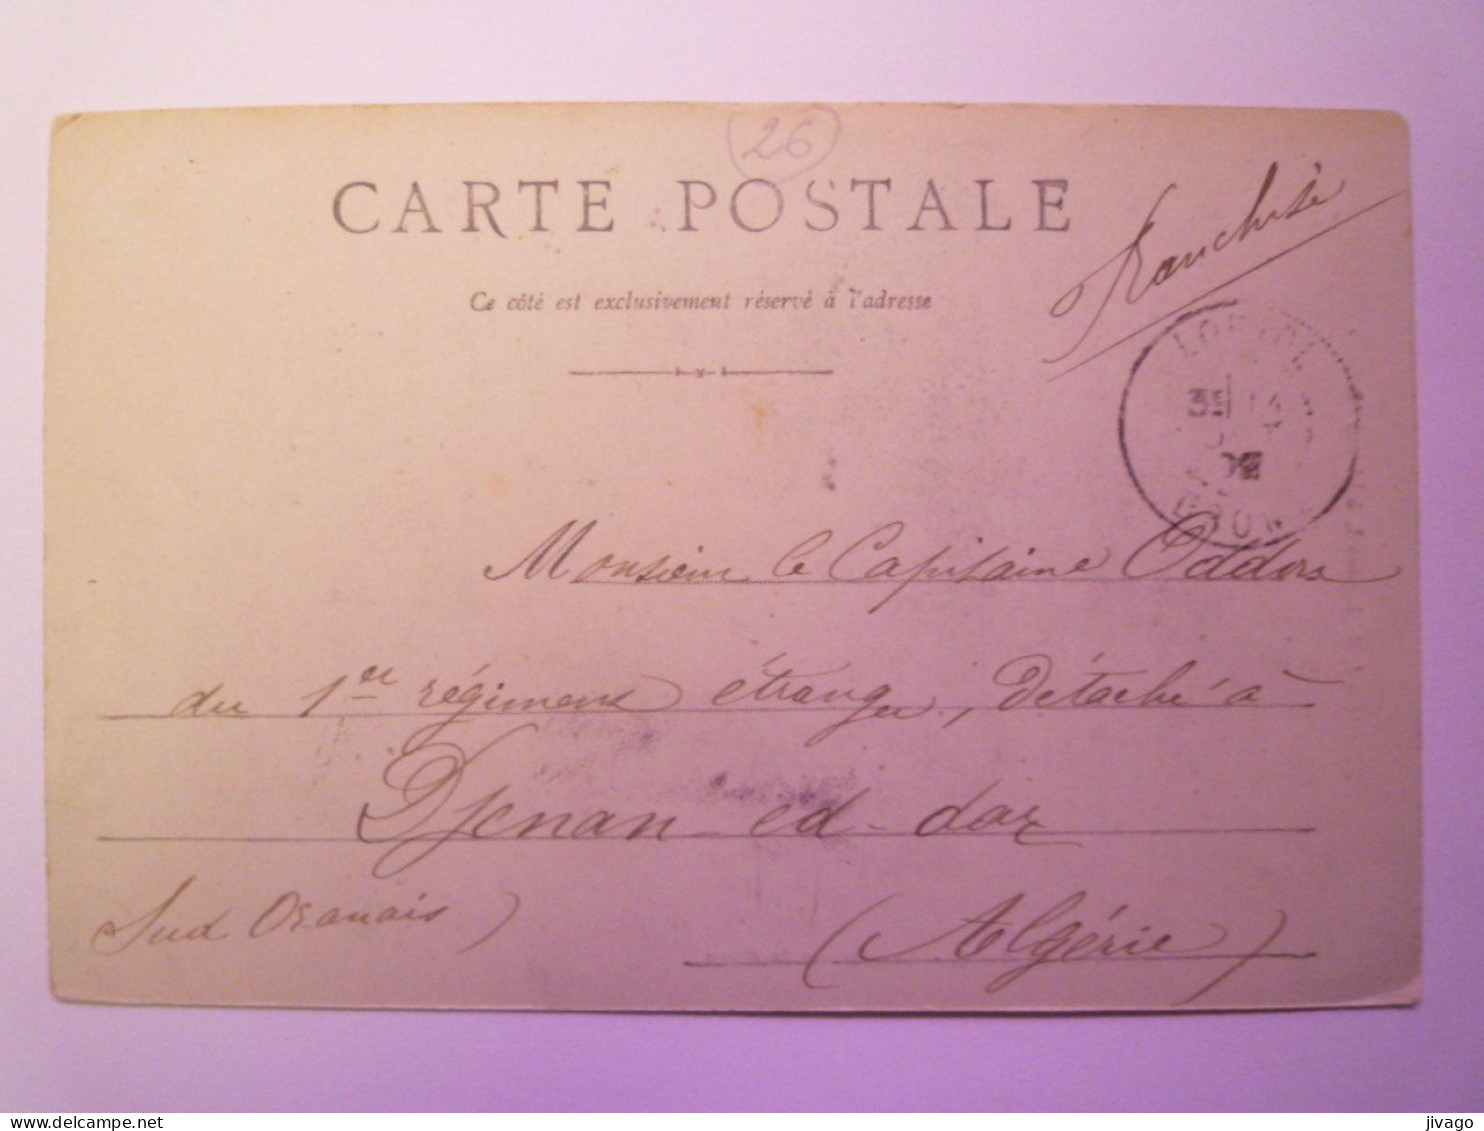 26
CARTE POSTALE
Franchise
Ce côté est exclusivement réservé à l'adresse
LORIOL
3E 14
DROME
Monsieur le Capitaine Oddou
du 1er régiment étranger, détaché à
Djenan-ed-dar
Sud Oranais)
(Algérie)
jivago
delcampe.net